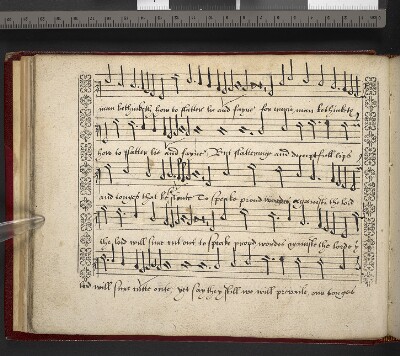 man bethinketh how to flatter lie and fayne for every man bethinketh
how to flatter lie and fayne But flatteringe and deceytfull lips
and tonges that be stoute To speake proud wordes against the lord
the lord will sure cut out to speake proud wordes against the lorde
lord will sure cutte oute, yet say they still we will prevaile, our tonges